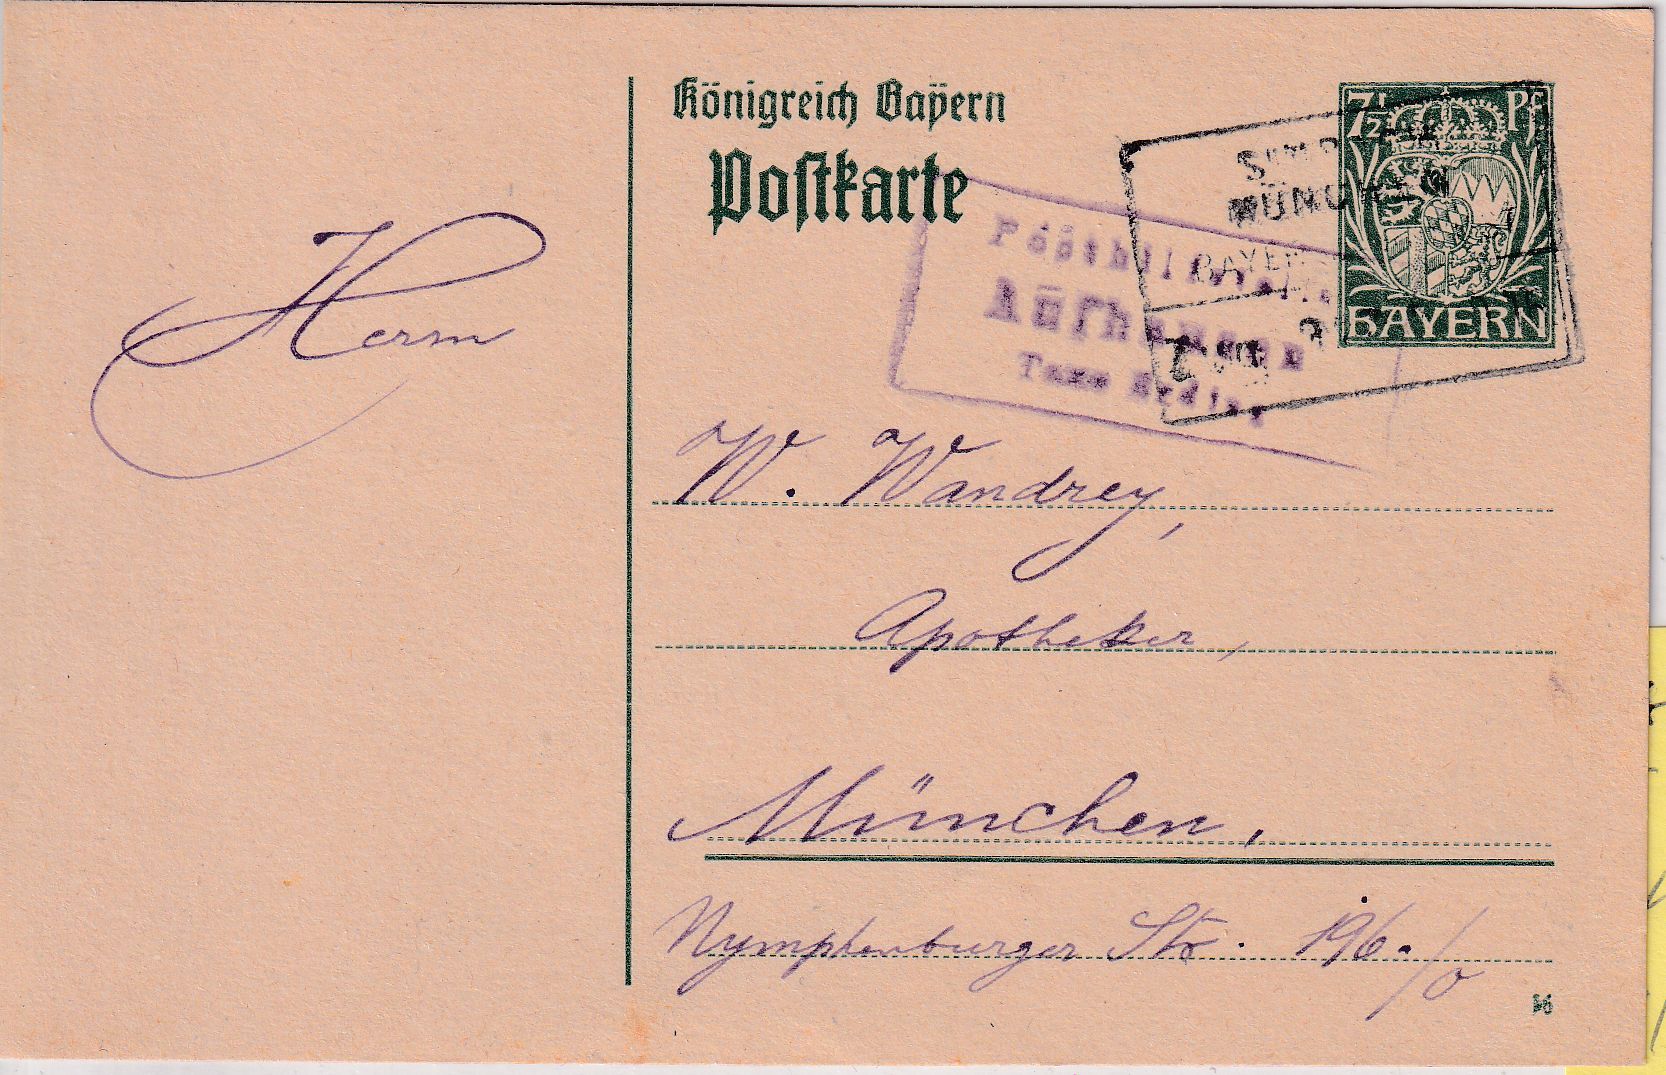 Königreich Bayern
Postkarte
7½ Pf
BAYERN
MÜNCHEN
Aufhausen
Taxe Erding
Herrn
W. Wandrey,
Apotheker,
München,
Nymphenburger Str. 196./0